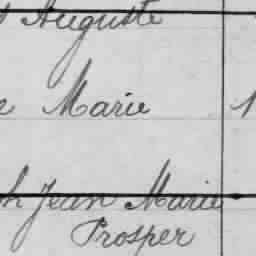 Auguste
Marie
Jean Marie
Prosper